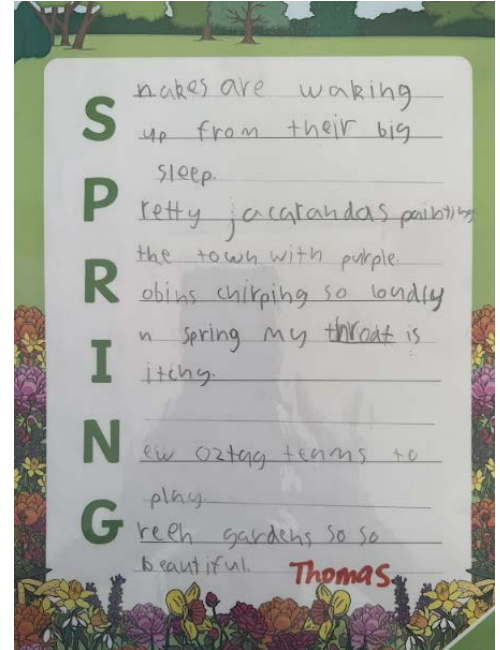 S nakes are waking
up from their big
sleep.
P retty jacarandas painting
the town with purple.
R obins chirping so loudly
I n spring my throat is
itchy.
N ew oztag teams to
play.
G reen gardens so so
beautiful. Thomas